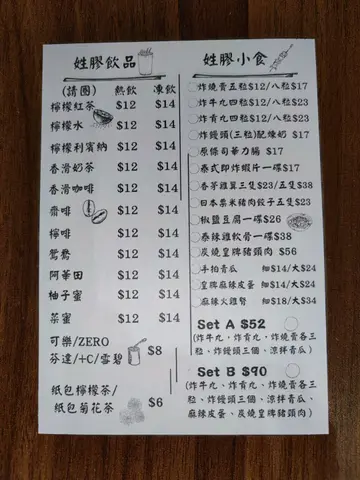 姓膠飲品
(請圈) 熱飲 凍飲
檸檬紅茶 $12 $14
檸檬水 $12 $14
檸檬利賓納 $12 $14
香滑奶茶 $12 $14
香滑咖啡 $12 $14
齋啡 $12 $14
檸啡 $12 $14
鴛鴦 $12 $14
阿華田 $12 $14
柚子蜜 $12 $14
菜蜜 $12 $14
可樂/ZERO
芬達/+C/雪碧 $8
紙包檸檬茶/
紙包菊花茶 $6
姓膠小食
炸燒賣五粒$12/八粒$17
炸牛丸四粒$12/八粒$23
炸肯丸四粒$12/八粒$23
炸饅頭(三粒)配煉奶 $17
原條司華力腸 $17
泰式即炸蝦片一碟$17
香茅雞翼三隻$23/五隻$38
日本粟米豬肉餃子五隻$23
椒鹽豆腐一碟$26
泰辣雞軟骨一碟$38
炭燒皇牌豬頸肉 $56
手拍青瓜 細$14/大$24
皇牌麻辣皮蛋 細$14/大$24
麻辣火雞腎 細$18/大$34
Set A $52
(炸牛丸、炸肯丸、炸燒賣各三
粒、炸饅頭三個、涼拌青瓜)
Set B $90
(炸牛丸、炸肯丸、炸燒賣各三
粒、炸饅頭三個、涼拌青瓜、
麻辣皮蛋、炭燒皇牌豬頸肉)